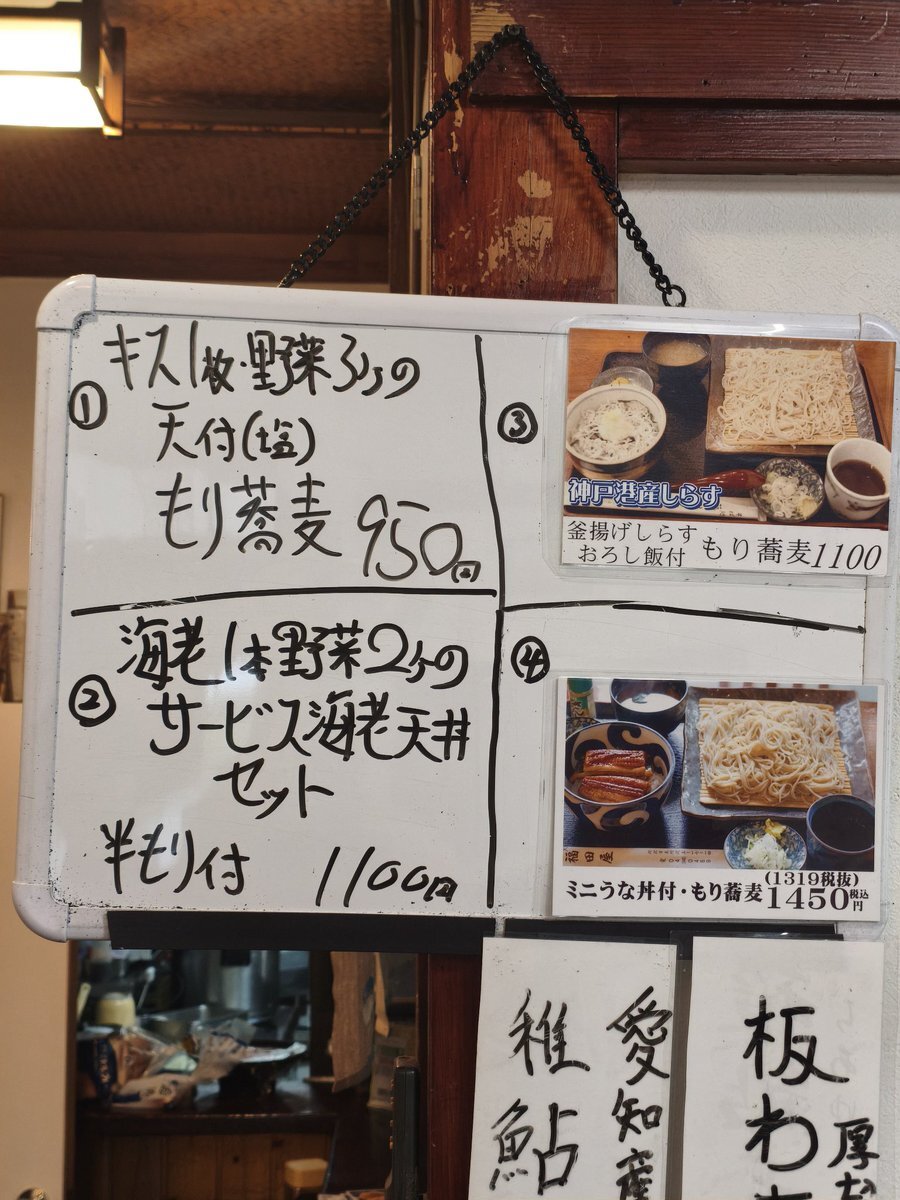 ①
キス1枚・野菜3ケの
天付(塩)
もり蕎麦 950円
②
海老1本野菜2ケの
サービス海老天丼
セット
半もり付 1100円
③
神戸港産しらす
釜揚げしらす
おろし飯付 もり蕎麦1100
④
福田屋
(1319税抜)
ミニうな丼付・もり蕎麦1450税込円
愛知産
稚鮎
板わ
厚